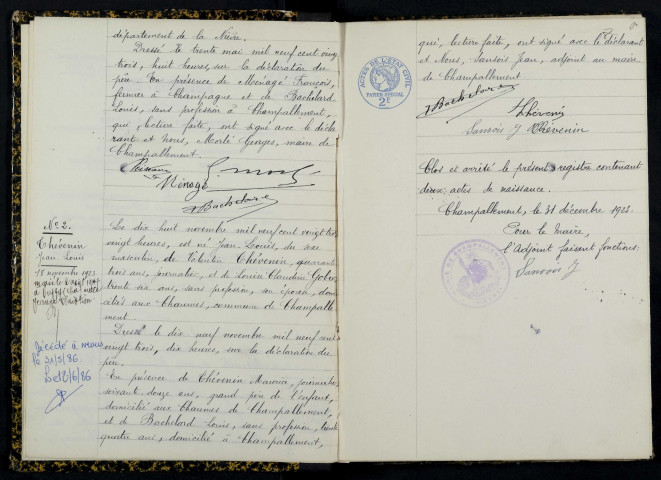 département de la Nièvre.
Dressé le trente mai mil neuf cent vingt
trois, huit heures, sur la déclaration du
père. En présence de Ménagé François,
fermier à Champagne et de Bachelard
Louis, sans profession à Champallement,
qui, lecture faite, ont signé avec le décla
rant et Nous, Morlé Georges, maire de
Champallement.
Ménagé
Bachelard
N° 2.
Thévenin
Jean Louis
18 novembre 1923
Décédé à
le 31/5/86
Le 12/6/86
Le dix huit novembre mil neuf cent vingt trois
vingt heures, est né Jean Louis, du sexe
masculin, de Valentin Thévenin, quarante
trois ans, journalier, et de Louise Claudine
trente six ans, sans profession, son épouse, domi
ciliés aux Chaumes, commune de Champalle
ment
Dressé le dix neuf novembre mil neuf cent
vingt trois, dix heures, sur la déclaration du
père.
En présence de Thévenin Maurice, journalier,
soixante douze ans, grand père de l'enfant,
domicilié aux Chaumes de Champallement,
et de Bachelard Louis, sans profession, trente
quatre ans, domicilié à Champallement,
ACTES DE L'ETAT CIVIL
PAPIER SPECIAL
2F
qui, lecture faite, ont signé avec le déclarant
et Nous, Sansois Jean, adjoint au maire
de Champallement
Bachelard
Thévenin
Sansois J Thévenin
Clos et arrêté le présent registre contenant
deux actes de naissance.
Champallement, le 31 décembre 1923.
Pour le Maire,
l'Adjoint faisant fonctions:
Sansois J